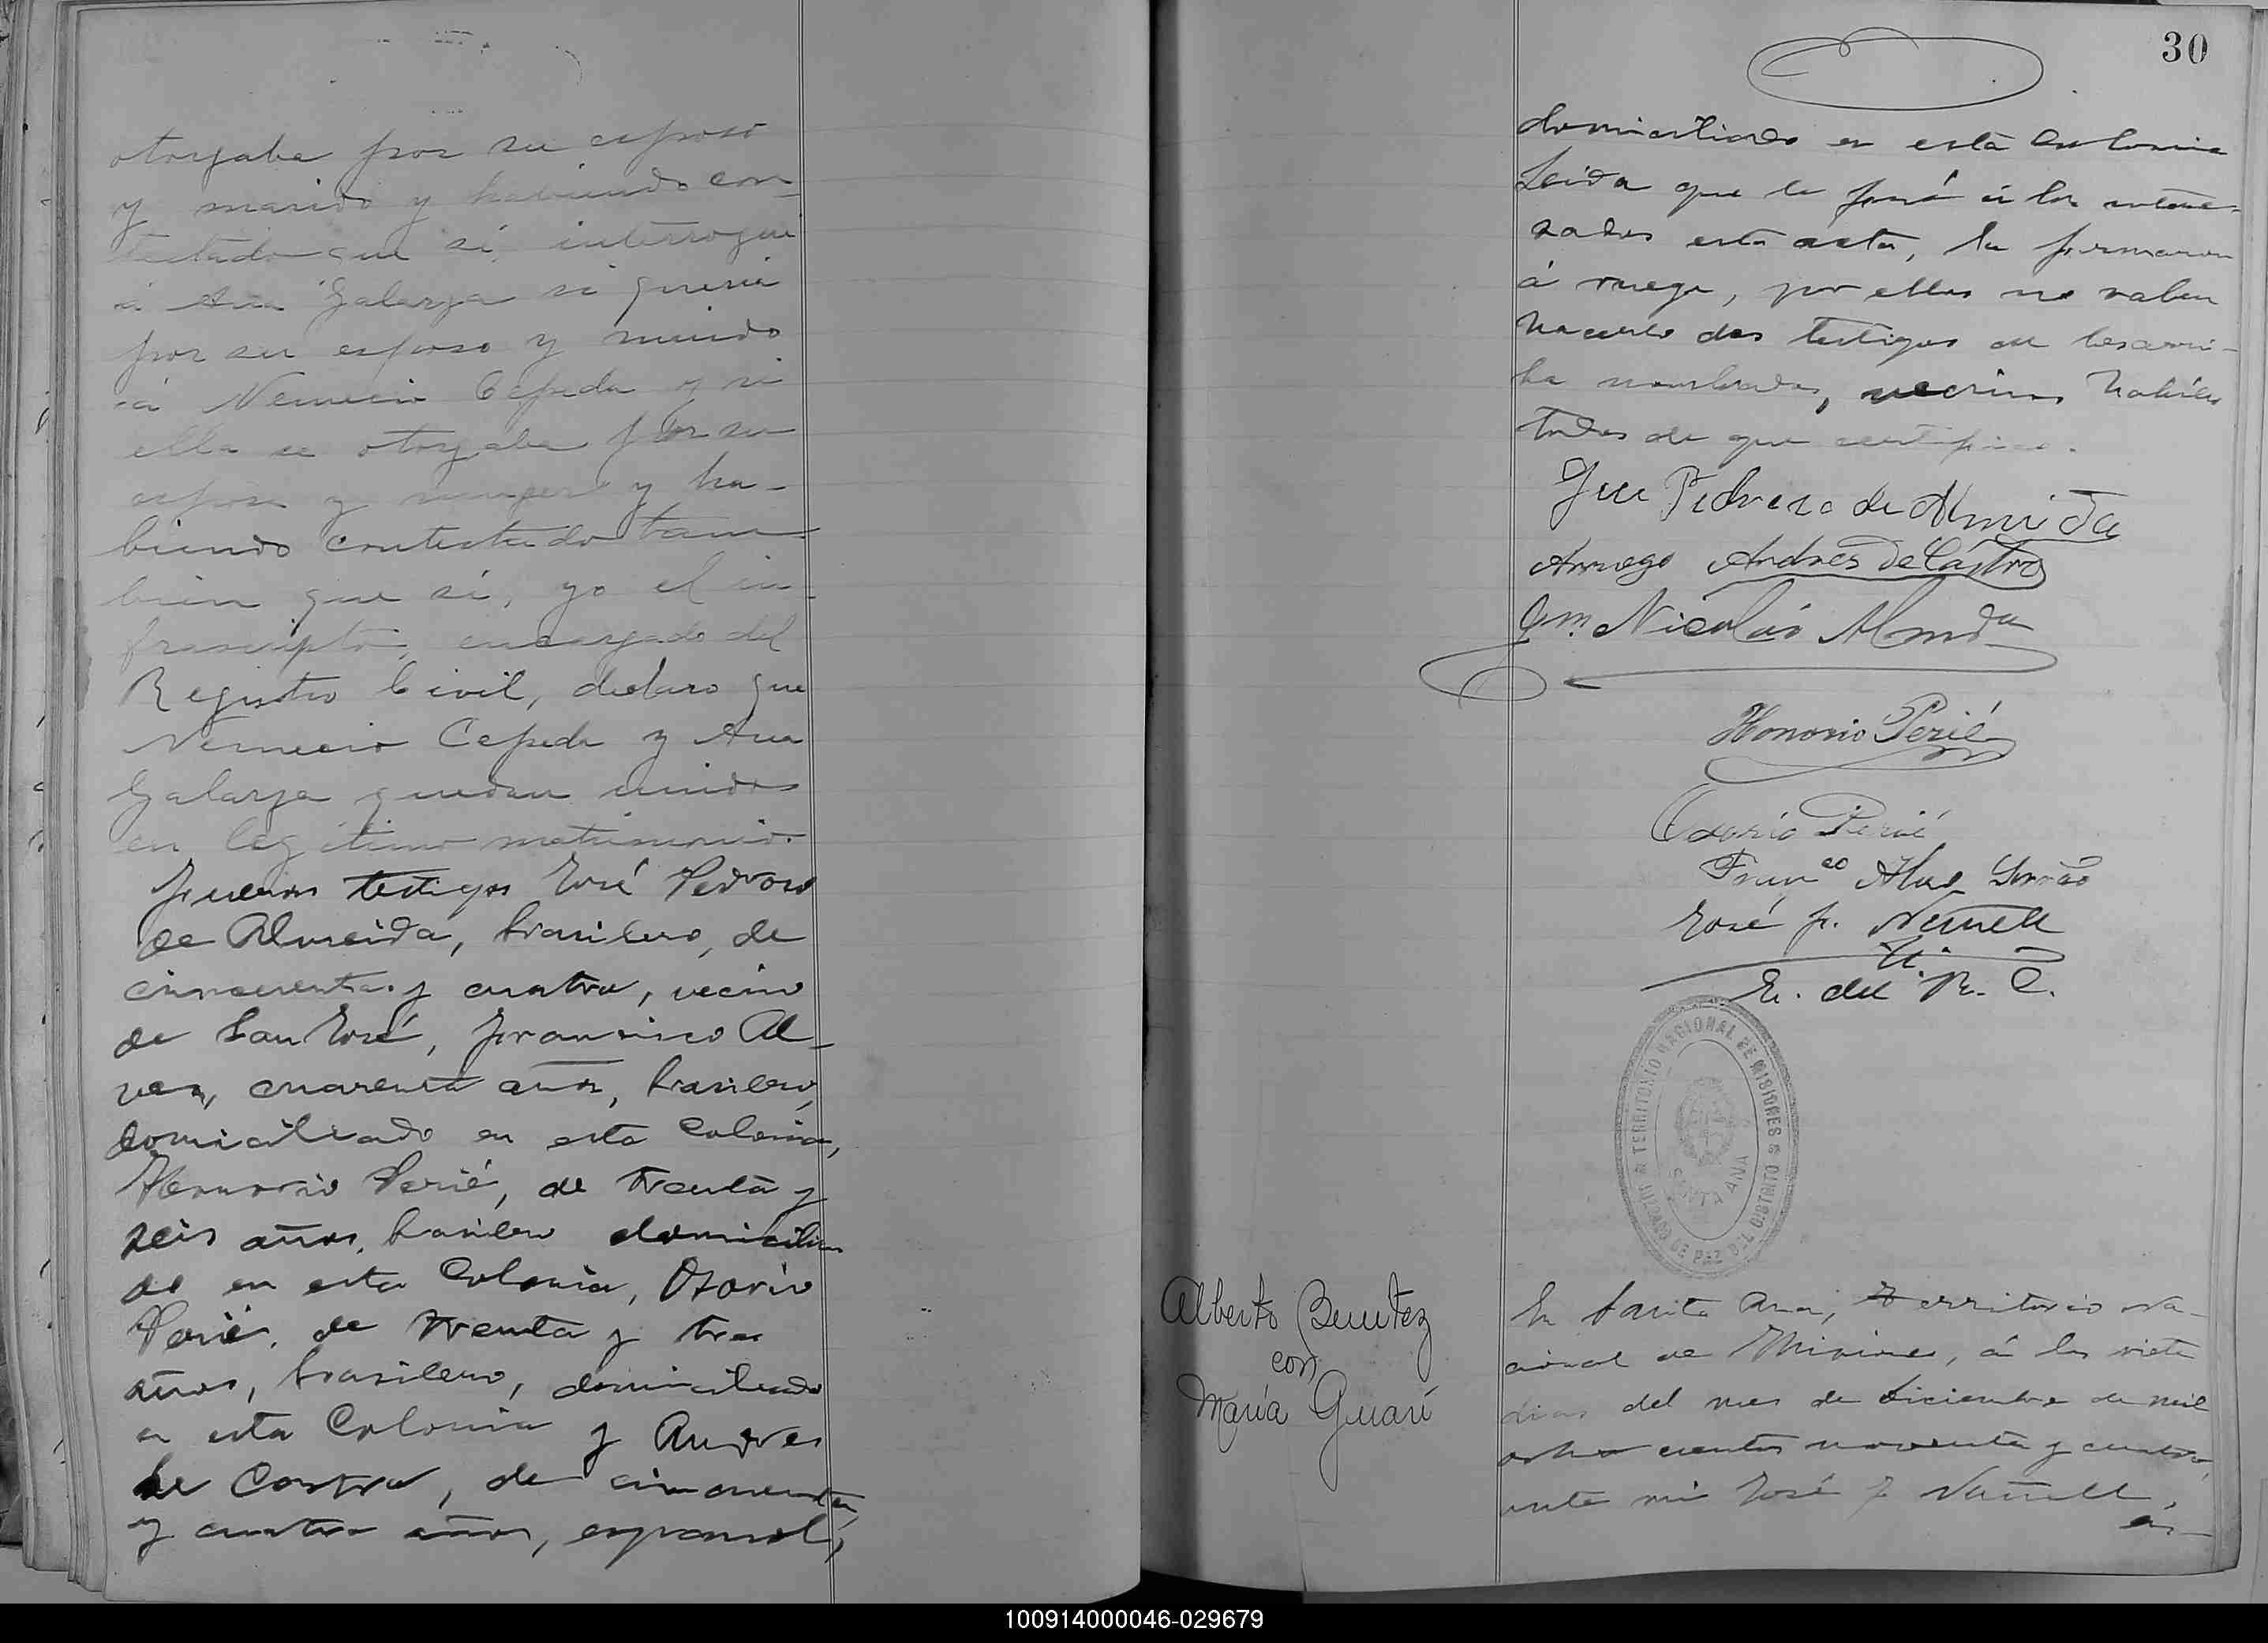 otorgaba por su esposo
y marido y habiendo con-
testado que sí, interrogue
á Ana Galarza si queria
por su esposo y marido
á Nemecio Cepeda y si
ella se otorgaba por su
esposa y muger y ha-
biendo contestado tam-
bien que sí, yo el in-
frascripto, encargado del
Registro Civil, declaro que
Nemecio Cepeda y Ana
Galarza quedan unidos
en legitimo matrimonio.
Fueron testigos José Pedroso
de Almeida, brasilero, de
cincuenta y cuatro, vecino
de San José, Francisco Al-
ves, cuarenta años, brasilero,
domiciliado en esta Colonia,
Honorio Perié, de treinta y
seis años, brasilero domicilia
do en esta Colonia, Osorio
Perié, de treinta y tres
años, brasilero, domiciliado
en esta Colonia y Andres
de Castro, de cincuenta
y cuatro años, español,
30
domiciliado en esta Colonia
Leida que le fué á los intere-
sados esta acta, la firmaron
á ruego, por ellos no saben
hacerlo dos testigos de los arri-
ba nombrados, vecinos habiles
todos de que certifico.
Jse Pedrozo de Almeida
Arruego Andres de Castro
Nicolás Almda
Honorio Perié
Osorio Perié
Franco Alves
José F. Nemell
E. del R. C.
JUZGADO DE PAZ DEL DISTRITO
TERRITORIO NACIONAL DE MISIONES
SANTA ANA
Alberto Benitez
con
María Guarí
En Santa Ana, Territorio Na-
cional de Misiones, á los siete
dias del mes de Diciembre de mil
ocho cientos noventa y cuatro,
ante mi José F.
100914000046-029679